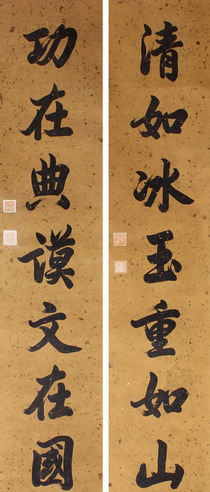 清如冰玉重如山
功在典谟文在國